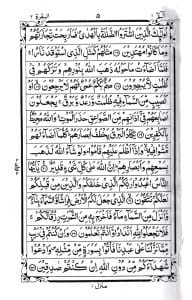 البقرة ٢ ٥ الٓمٓ ١
اُولٰٓئِكَ الَّذِيْنَ اشْتَرَوُا الضَّلٰلَةَ بِالْهُدٰى فَمَا رَبِحَتْ تِّجَارَتُهُمْ
وَمَا كَانُوْا مُهْتَدِيْنَ ۝ مَثَلُهُمْ كَمَثَلِ الَّذِى اسْتَوْقَدَ نَارًا
فَلَمَّآ اَضَآءَتْ مَا حَوْلَهٗ ذَهَبَ اللّٰهُ بِنُوْرِهِمْ وَتَرَكَهُمْ فِىْ
ظُلُمٰتٍ لَّا يُبْصِرُوْنَ ۝ صُمٌّۢ بُكْمٌ عُمْىٌ فَهُمْ لَا يَرْجِعُوْنَ ۝ اَوْ
كَصَيِّبٍ مِّنَ السَّمَآءِ فِيْهِ ظُلُمٰتٌ وَّرَعْدٌ وَّبَرْقٌ يَجْعَلُوْنَ
اَصَابِعَهُمْ فِىْٓ اٰذَانِهِمْ مِّنَ الصَّوَاعِقِ حَذَرَ الْمَوْتِ وَاللّٰهُ مُحِيْطٌۢ
بِالْكٰفِرِيْنَ ۝ يَكَادُ الْبَرْقُ يَخْطَفُ اَبْصَارَهُمْ كُلَّمَآ اَضَآءَ لَهُمْ
مَّشَوْا فِيْهِ وَاِذَآ اَظْلَمَ عَلَيْهِمْ قَامُوْا وَلَوْ شَآءَ اللّٰهُ لَذَهَبَ
بِسَمْعِهِمْ وَاَبْصَارِهِمْ اِنَّ اللّٰهَ عَلٰى كُلِّ شَىْءٍ قَدِيْرٌ ۝ يٰٓاَيُّهَا
النَّاسُ اعْبُدُوْا رَبَّكُمُ الَّذِىْ خَلَقَكُمْ وَالَّذِيْنَ مِنْ قَبْلِكُمْ
لَعَلَّكُمْ تَتَّقُوْنَ ۝ الَّذِىْ جَعَلَ لَكُمُ الْاَرْضَ فِرَاشًا وَّالسَّمَآءَ
بِنَآءً وَّاَنْزَلَ مِنَ السَّمَآءِ مَآءً فَاَخْرَجَ بِهٖ مِنَ الثَّمَرٰتِ رِزْقًا لَّكُمْ
فَلَا تَجْعَلُوْا لِلّٰهِ اَنْدَادًا وَّاَنْتُمْ تَعْلَمُوْنَ ۝ وَاِنْ كُنْتُمْ فِىْ رَيْبٍ
مِّمَّا نَزَّلْنَا عَلٰى عَبْدِنَا فَاْتُوْا بِسُوْرَةٍ مِّنْ مِّثْلِهٖ وَادْعُوْا
شُهَدَآءَكُمْ مِّنْ دُوْنِ اللّٰهِ اِنْ كُنْتُمْ صٰدِقِيْنَ ۝
منزل ١